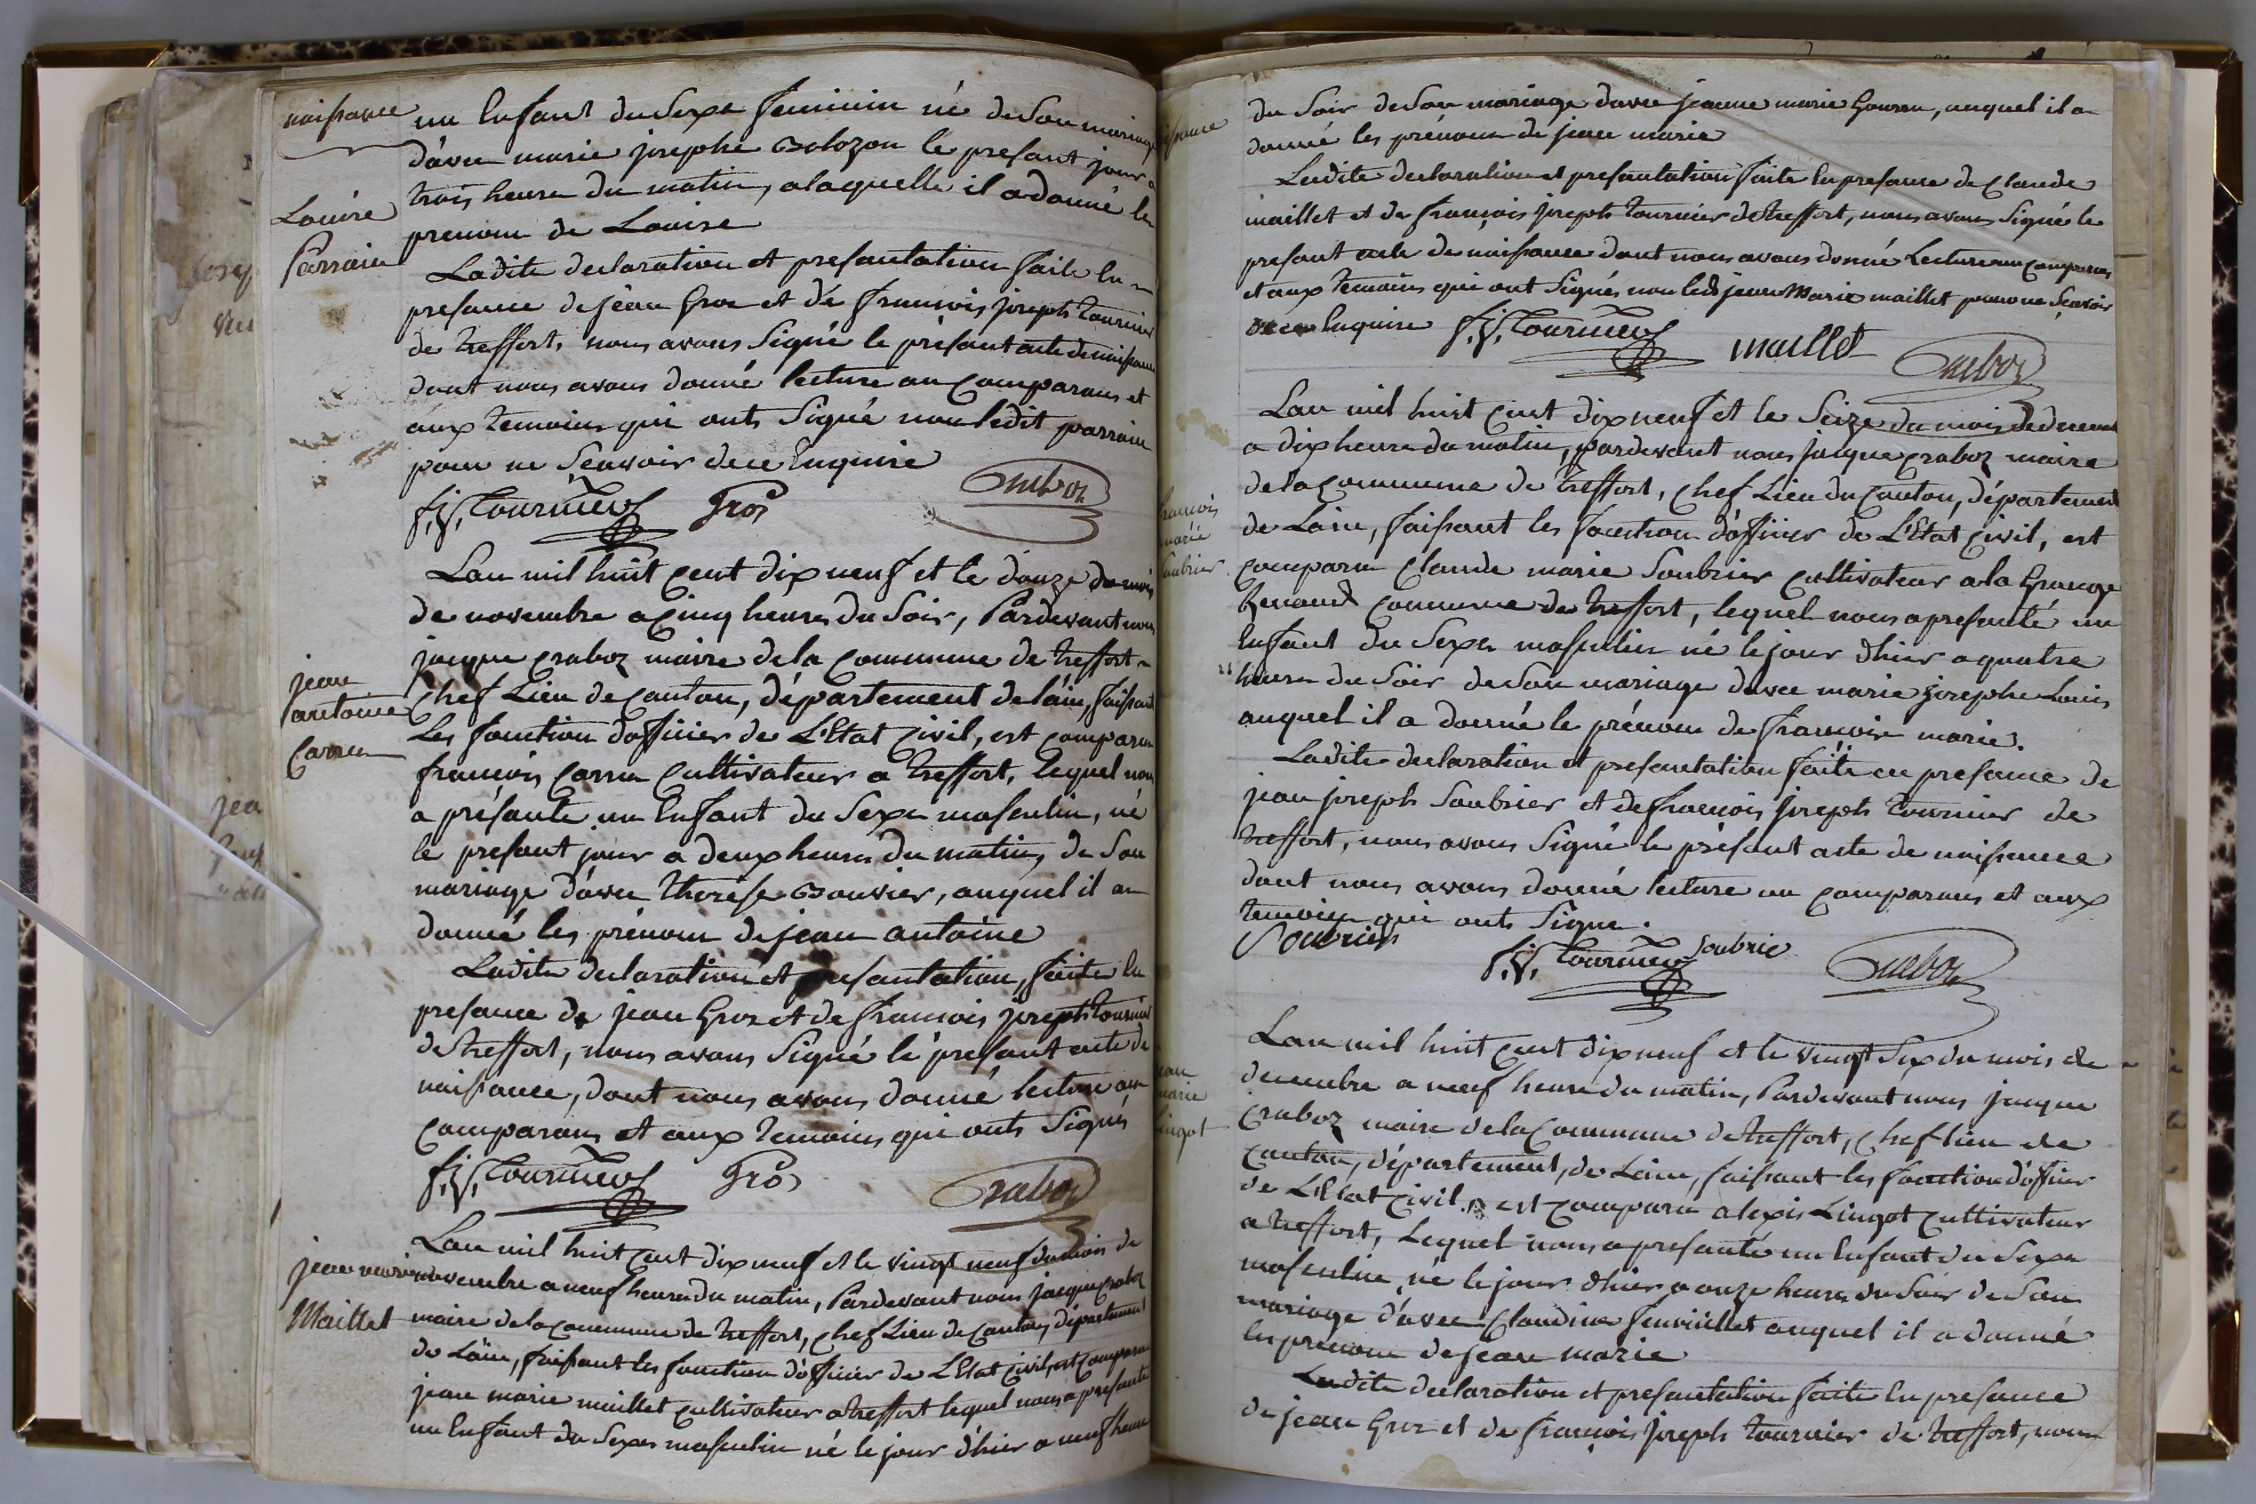 naissance
un Enfant du Sexe feminin né de Son mariage
d'avec marie josephe Bolozon le presant jour a
trois heure du matin, a laquelle il a donné le
prenom de Louise
Louise
Parrain
Ladite declaration et presantation faite En
presance de jean Gros et de francois joseph tournier
de treffort, nous avons Signé le présant acte de naissance
dont nous avons donné lecture au Comparans et
aux temoins qui onts Signé non ledit parrain
pour ne Scavoir de ce Enquire
f. j. Tournier Gros Craboz
Lan mil huit Cent dix neuf et le douze du mois
de novembre a Cinq heures du Soir, Pardevant nous
jacque Craboz maire de la Commune de treffort
Chef Lieu de Canton, département de l'ain, faissant
Les fonction d'officier de L'Etat Civil, est Comparu
jean
antoine
Carru
francois Carru Cultivateur a treffort, lequel nous
a présanté un Enfant du Sexe masculin, né
le presant jour a deux heures du matin, de Son
mariage d'avec therese Bouvier, auquel il a
donné les prénom de jean antoine
Ladite declaration et presantation, faite En
presance de jean Gros et de francois joseph tournier
de treffort, nous avons Signé le présant acte de
naissance, dont nous avons donné lecture au
Comparans et aux temoins qui onts Signés
f. j. Tournier Gros Craboz
Lan mil huit Cent dix neuf et le vingt neuf du mois de
novembre a neuf heures du matin, Pardevant nous jacque Craboz
maire de la Commune de treffort, Chef Lieu de Canton, département
de Lain, faissant les fonction d'officier de L'Etat Civil, est Comparu
jean marie maillet Cultivateur a treffort lequel nous a presanté
un Enfant du Sexe masculin né le jour d'hier a neuf heure
jean marie
Maillet
du Soir de Son mariage d'avec jeanne marie Gouron, auquel il a
donné les prénom de jean marie
Ladite declaration et presantation faite En presance de Claude
maillet et de françois joseph tournier de treffort, nous avons Signé le
presant acte de naissance dont nous avons donné Lecture au Comparans
et aux temoins qui ont Signés non ledit jean Marie maillet pour ne Scavoir
de ce Enquire f. j. Tournier maillet Craboz
Lan mil huit Cent dix neuf et le Seize du mois de decembre
a dix heure du matin, pardevant nous jacque Craboz maire
de la Commune de treffort, Chef Lieu du Canton, département
de Lain, faissant les fonction d'officier de L'Etat Civil, est
francois
marie
Soubrier
Comparu Claude marie Soubrier Cultivateur a la Grange
Renaud Commune de treffort, lequel nous a presanté un
Enfant du Sexe masculin né le jour d'hier a quatre
heure du Soir de Son mariage d'avec marie josephe Louis
auquel il a donné le prénom de francois marie.
Ladite declaration et presantation faite en presance de
jean joseph Soubrier et de francois joseph Tournier de
treffort, nous avons Signé le présant acte de naissance
dont nous avons donné lecture au Comparans et aux
temoins qui onts Signe.
Soubrier f. j. Tournier Soubrie Craboz
Lan mil huit Cent dix neuf et le vingt Six du mois de
decembre a neuf heure du matin, Pardevant nous jacque
Craboz maire de la Commune de treffort, Chef lieu de
Canton, département, de Lain, faissant les fonction d'officier
jean
marie
Lingot
de L'Etat Civil, est Comparu alexis Lingot Cultivateur
a treffort, Lequel nous a presanté un Enfant du Sexe
masculin, né le jour d'hier a onze heures du Soir de Son
mariage d'avec Claudine fenouillet auquel il a donné
les prenom de jean marie
Ladite declaration et presantation faite En presance
de jean Gros et de françois joseph tournier de treffort, nous